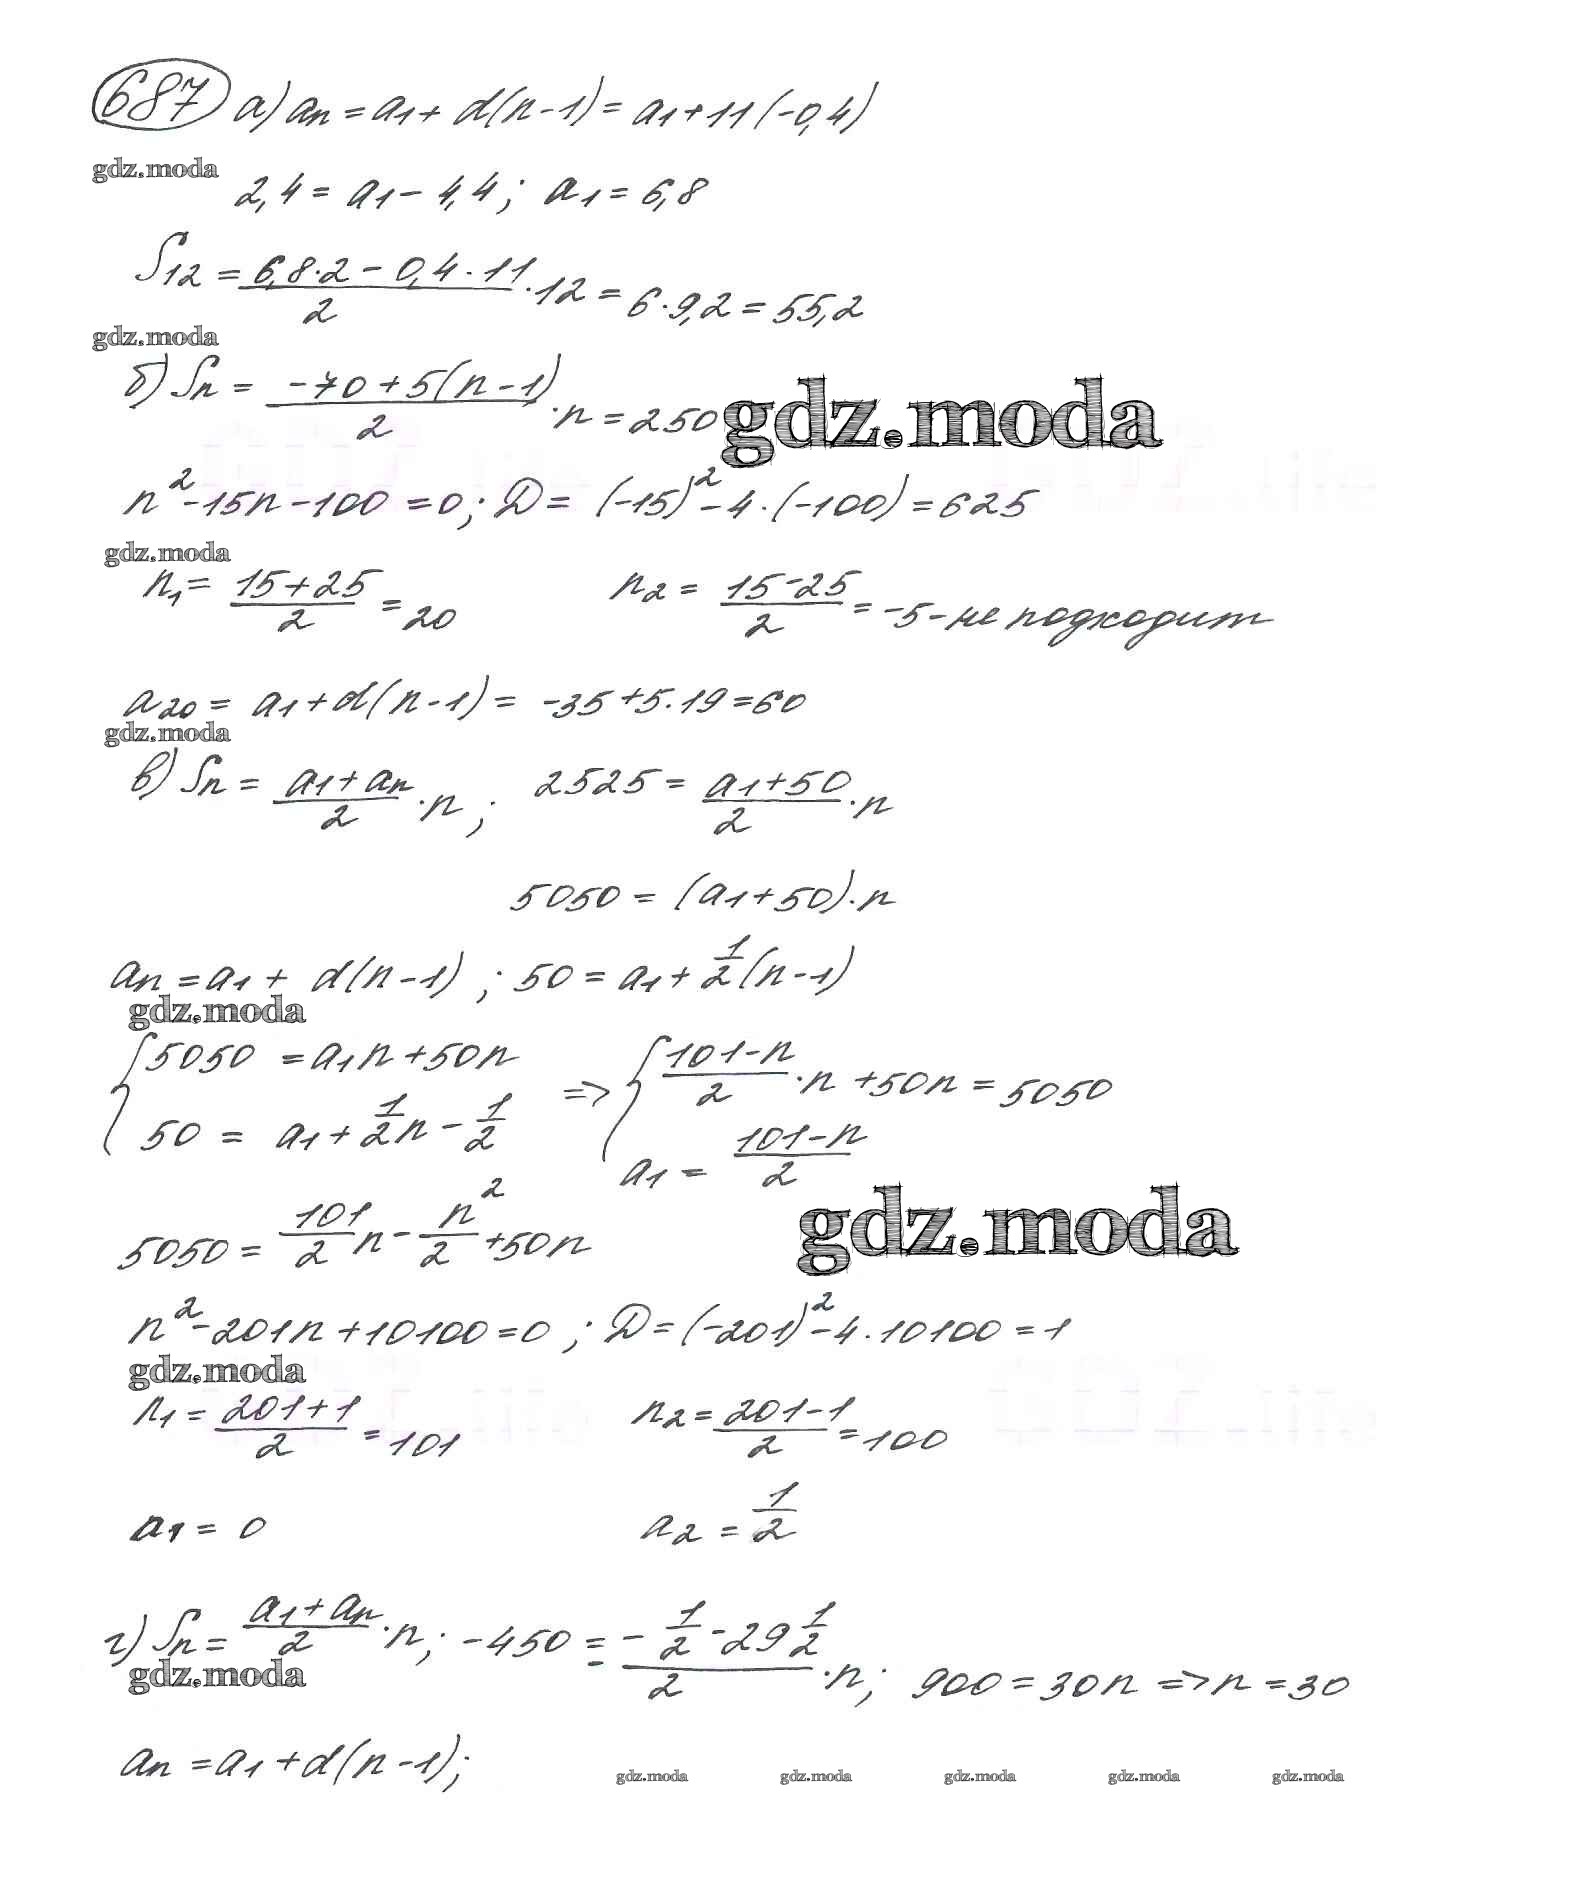 687 а) an = a1 + d(n-1) = a1 + 11(-0,4)
gdz.moda
2,4 = a1 - 4,4; a1 = 6,8
S12 = (6,8·2 - 0,4·11)/2 ·12 = 6·9,2 = 55,2
gdz.moda
б) Sn = (-70 + 5(n-1))/2 ·n = 250
gdz.moda
n² - 15n - 100 = 0; D = (-15)² - 4·(-100) = 625
gdz.moda
n1 = (15+25)/2 = 20 n2 = (15-25)/2 = -5 - не подходит
a20 = a1 + d(n-1) = -35 + 5·19 = 60
gdz.moda
в) Sn = (a1 + an)/2 ·n; 2525 = (a1+50)/2 ·n
5050 = (a1+50)·n
an = a1 + d(n-1); 50 = a1 + 1/2(n-1)
gdz.moda
{ 5050 = a1n + 50n => { (101-n)/2 ·n + 50n = 5050
50 = a1 + 1/2n - 1/2 a1 = (101-n)/2
gdz.moda
5050 = 101/2 n - n²/2 + 50n
n² - 201n + 10100 = 0; D = (-201)² - 4·10100 = 1
gdz.moda
n1 = (201+1)/2 = 101 n2 = (201-1)/2 = 100
a1 = 0 a2 = 1/2
г) Sn = (a1 + an)/2 ·n; -450 = (-1/2 - 29 1/2)/2 ·n; 900 = 30n => n = 30
gdz.moda
an = a1 + d(n-1);
gdz.moda gdz.moda gdz.moda gdz.moda gdz.moda